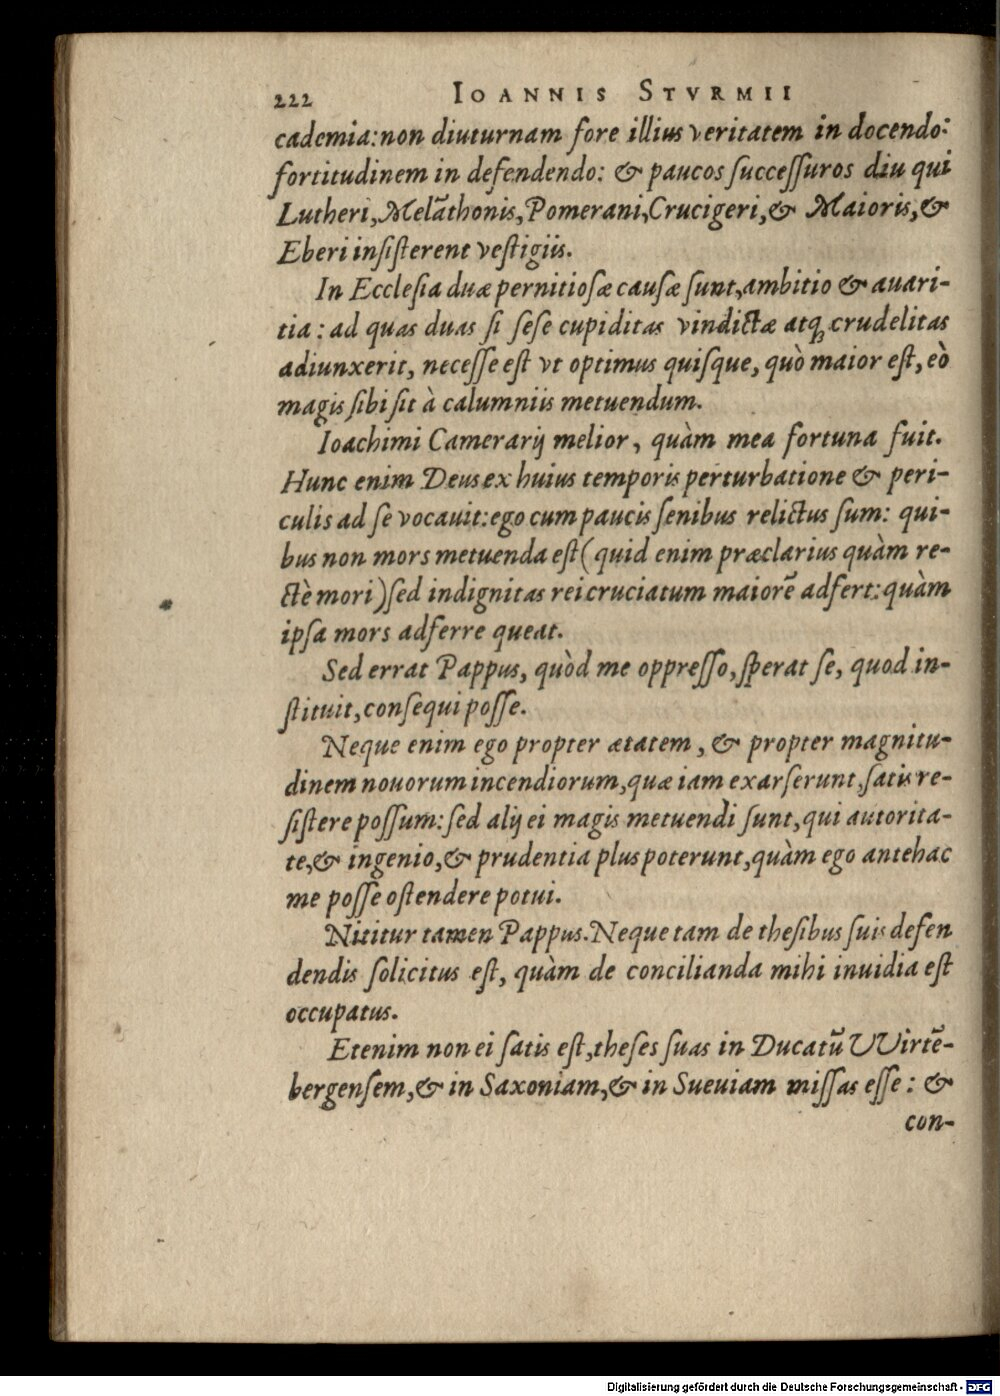 222 IOANNIS STVRMII
cademia: non diuturnam fore illius veritatem in docendo:
fortitudinem in defendendo: & paucos ſucceſſuros diu qui
Lutheri, Melāthonis, Pomerani, Crucigeri, & Maioris, &
Eberi inſiſterent veſtigiis.
In Eccleſia duæ pernitioſæ cauſæ ſunt, ambitio & auari-
tia: ad quas duas ſi ſeſe cupiditas vindictæ atq; crudelitas
adiunxerit, neceſſe eſt vt optimus quiſque, quò maior eſt, eò
magis ſibi ſit à calumniis metuendum.
Ioachimi Camerarij melior, quàm mea fortuna fuit.
Hunc enim Deus ex huius temporis perturbatione & peri-
culis ad ſe vocauit: ego cum paucis ſenibus relictus ſum: qui-
bus non mors metuenda eſt (quid enim præclarius quàm re-
ctè mori) ſed indignitas rei cruciatum maiorē adfert: quàm
ipſa mors adferre queat.
Sed errat Pappus, quòd me oppreſſo, ſperat ſe, quod in-
ſtituit, conſequi poſſe.
Neque enim ego propter ætatem, & propter magnitu-
dinem nouorum incendiorum, quæ iam exarſerunt, ſatis re-
ſiſtere poſſum: ſed alij ei magis metuendi ſunt, qui autorita-
te, & ingenio, & prudentia plus poterunt, quàm ego antehac
me poſſe oſtendere potui.
Nititur tamen Pappus. Neque tam de theſibus ſuis defen
dendis ſolicitus eſt, quàm de concilianda mihi inuidia eſt
occupatus.
Etenim non ei ſatis eſt, theſes ſuas in Ducatū VVirtē-
bergenſem, & in Saxoniam, & in Sueuiam miſſas eſſe: &
con-
Digitalisierung gefördert durch die Deutsche Forschungsgemeinschaft - DFG